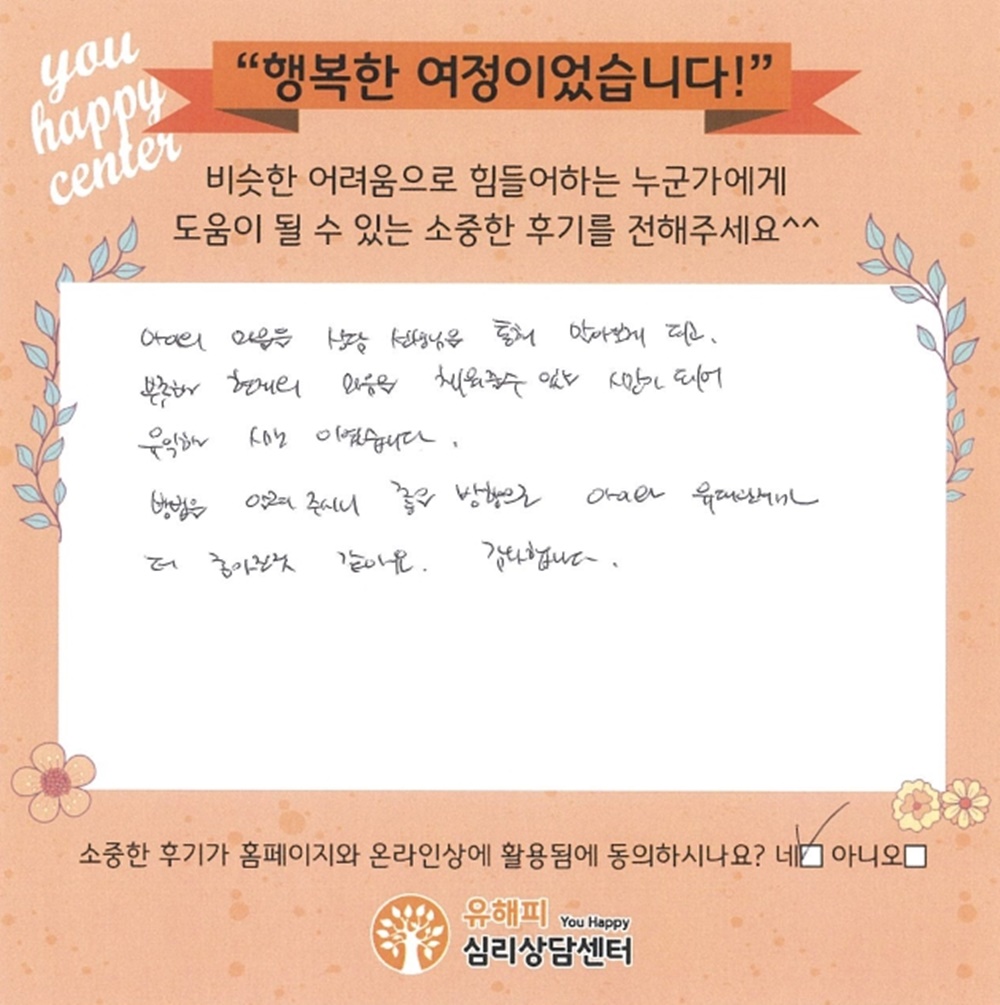 you
happy
center
“행복한 여정이었습니다!”
비슷한 어려움으로 힘들어하는 누군가에게
도움이 될 수 있는 소중한 후기를 전해주세요^^
아이의 마음을 상담 선생님을 통해 알아보게 되고.
부족한 현재의 마음을 채워줄수 있는 시간이 되어
유익한 시간 이였습니다.
방법을 알려 주시니 좋은 방향으로 아이와 유대관계가
더 좋아진듯 같아요. 감사합니다.
소중한 후기가 홈페이지와 온라인상에 활용됨에 동의하시나요? 네 아니오
유해피 You Happy
심리상담센터